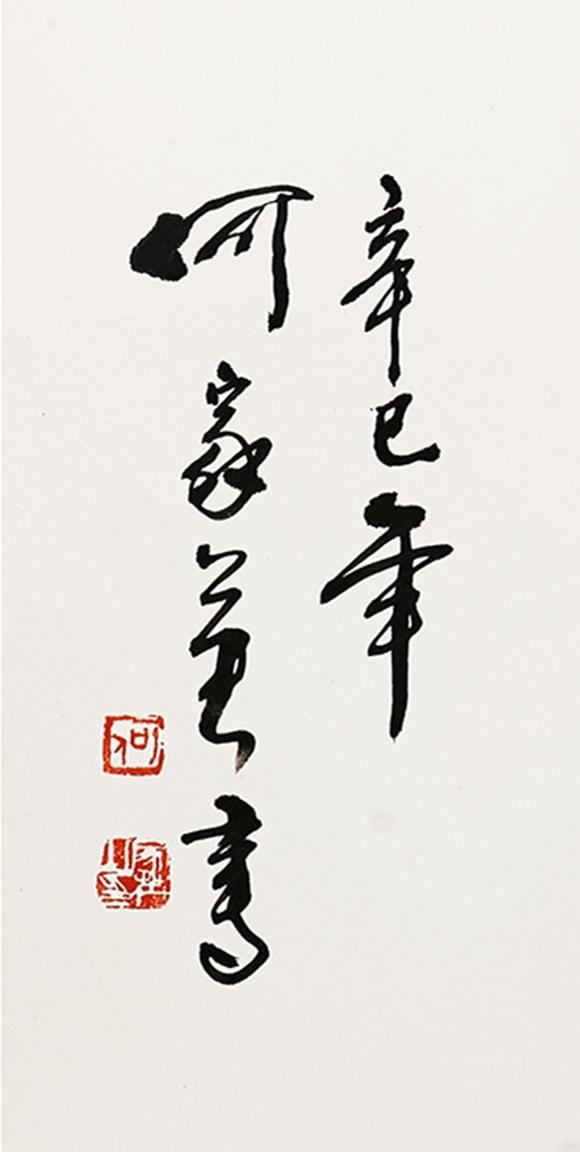 辛巳年
何家英書
何